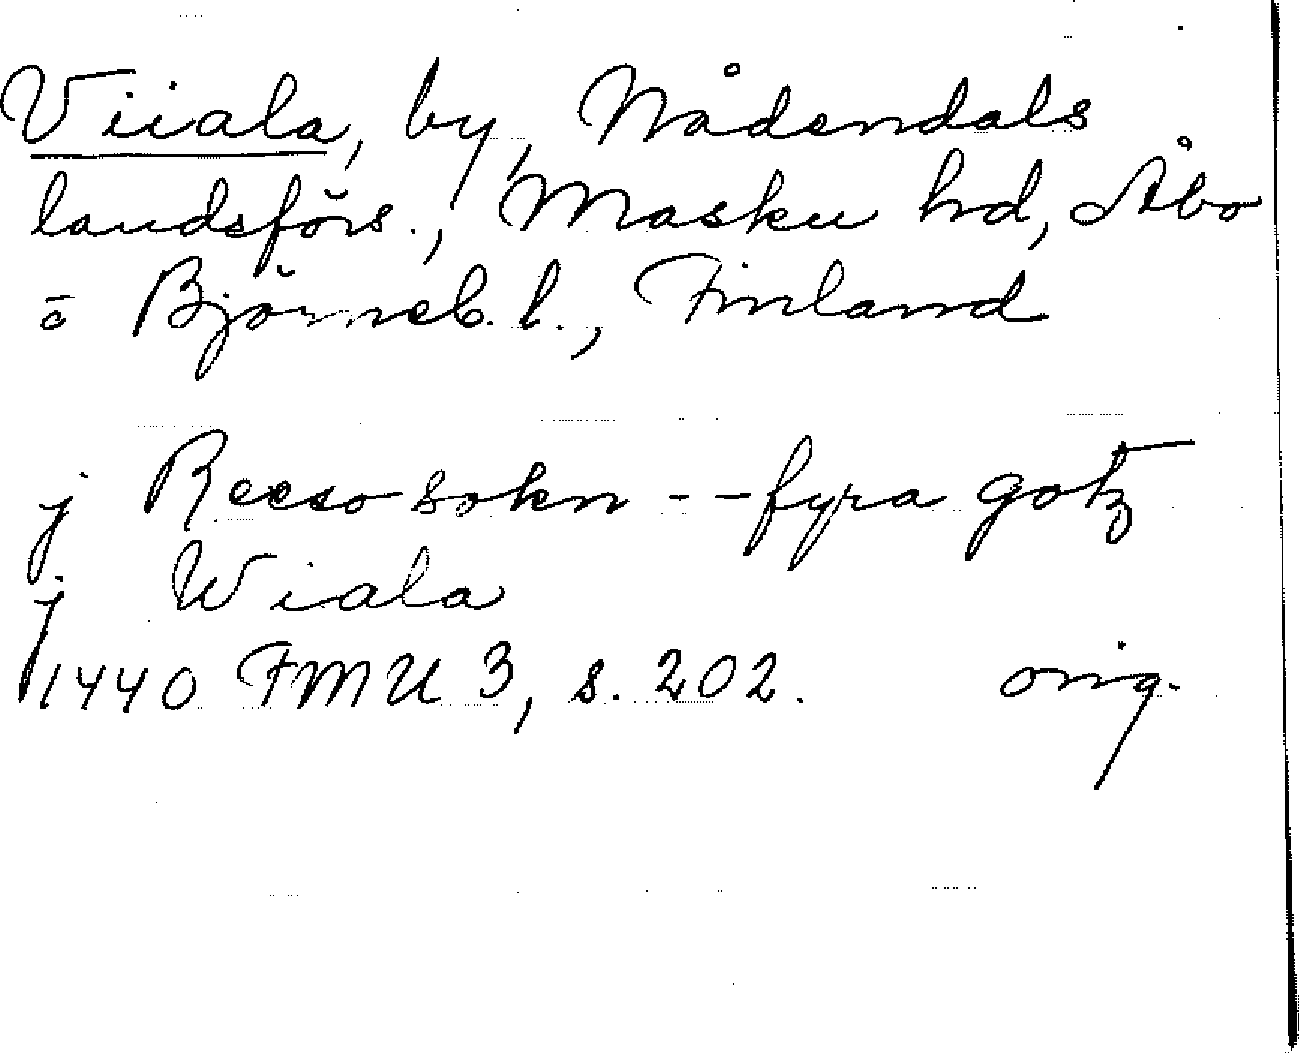 Viiala, by, Nådendals
landsförs., Masku hd, Åbo
o Björneb. l., Finland
j Reeso sokn - - fyra gotz
j Wiala
1440 FMU 3, s. 202. orig.